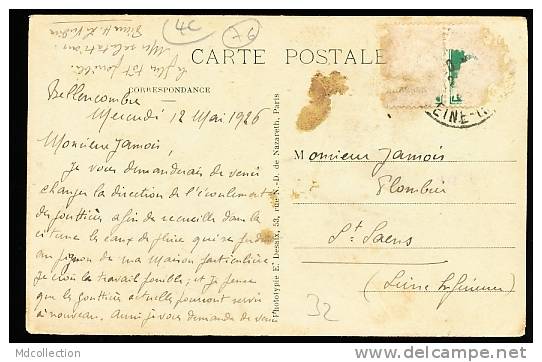 le plus tôt possible.
Mes salutations.
CARTE POSTALE
CORRESPONDANCE
Bellencombre
Mercredi 12 Mai 1926
Monsieur Jamois,
Je vous demanderais de venir
changer la direction de l'écoulement
des gouttières afin de recueillir dans la
citerne les eaux de pluie qui se perdent
au pignon de ma maison particulière
Je crois le travail possible; et je pense
que les gouttières actuelles pourront servir
à nouveau. Aussi je vous demande de venir
Phototypie E. Desaix, 53, rue N.-D. de Nazareth, Paris
EINE-I
Monsieur Jamois
Plombier
St Saens
(Seine Inférieure)
32
Mdcollection
http://www.delcampe.net